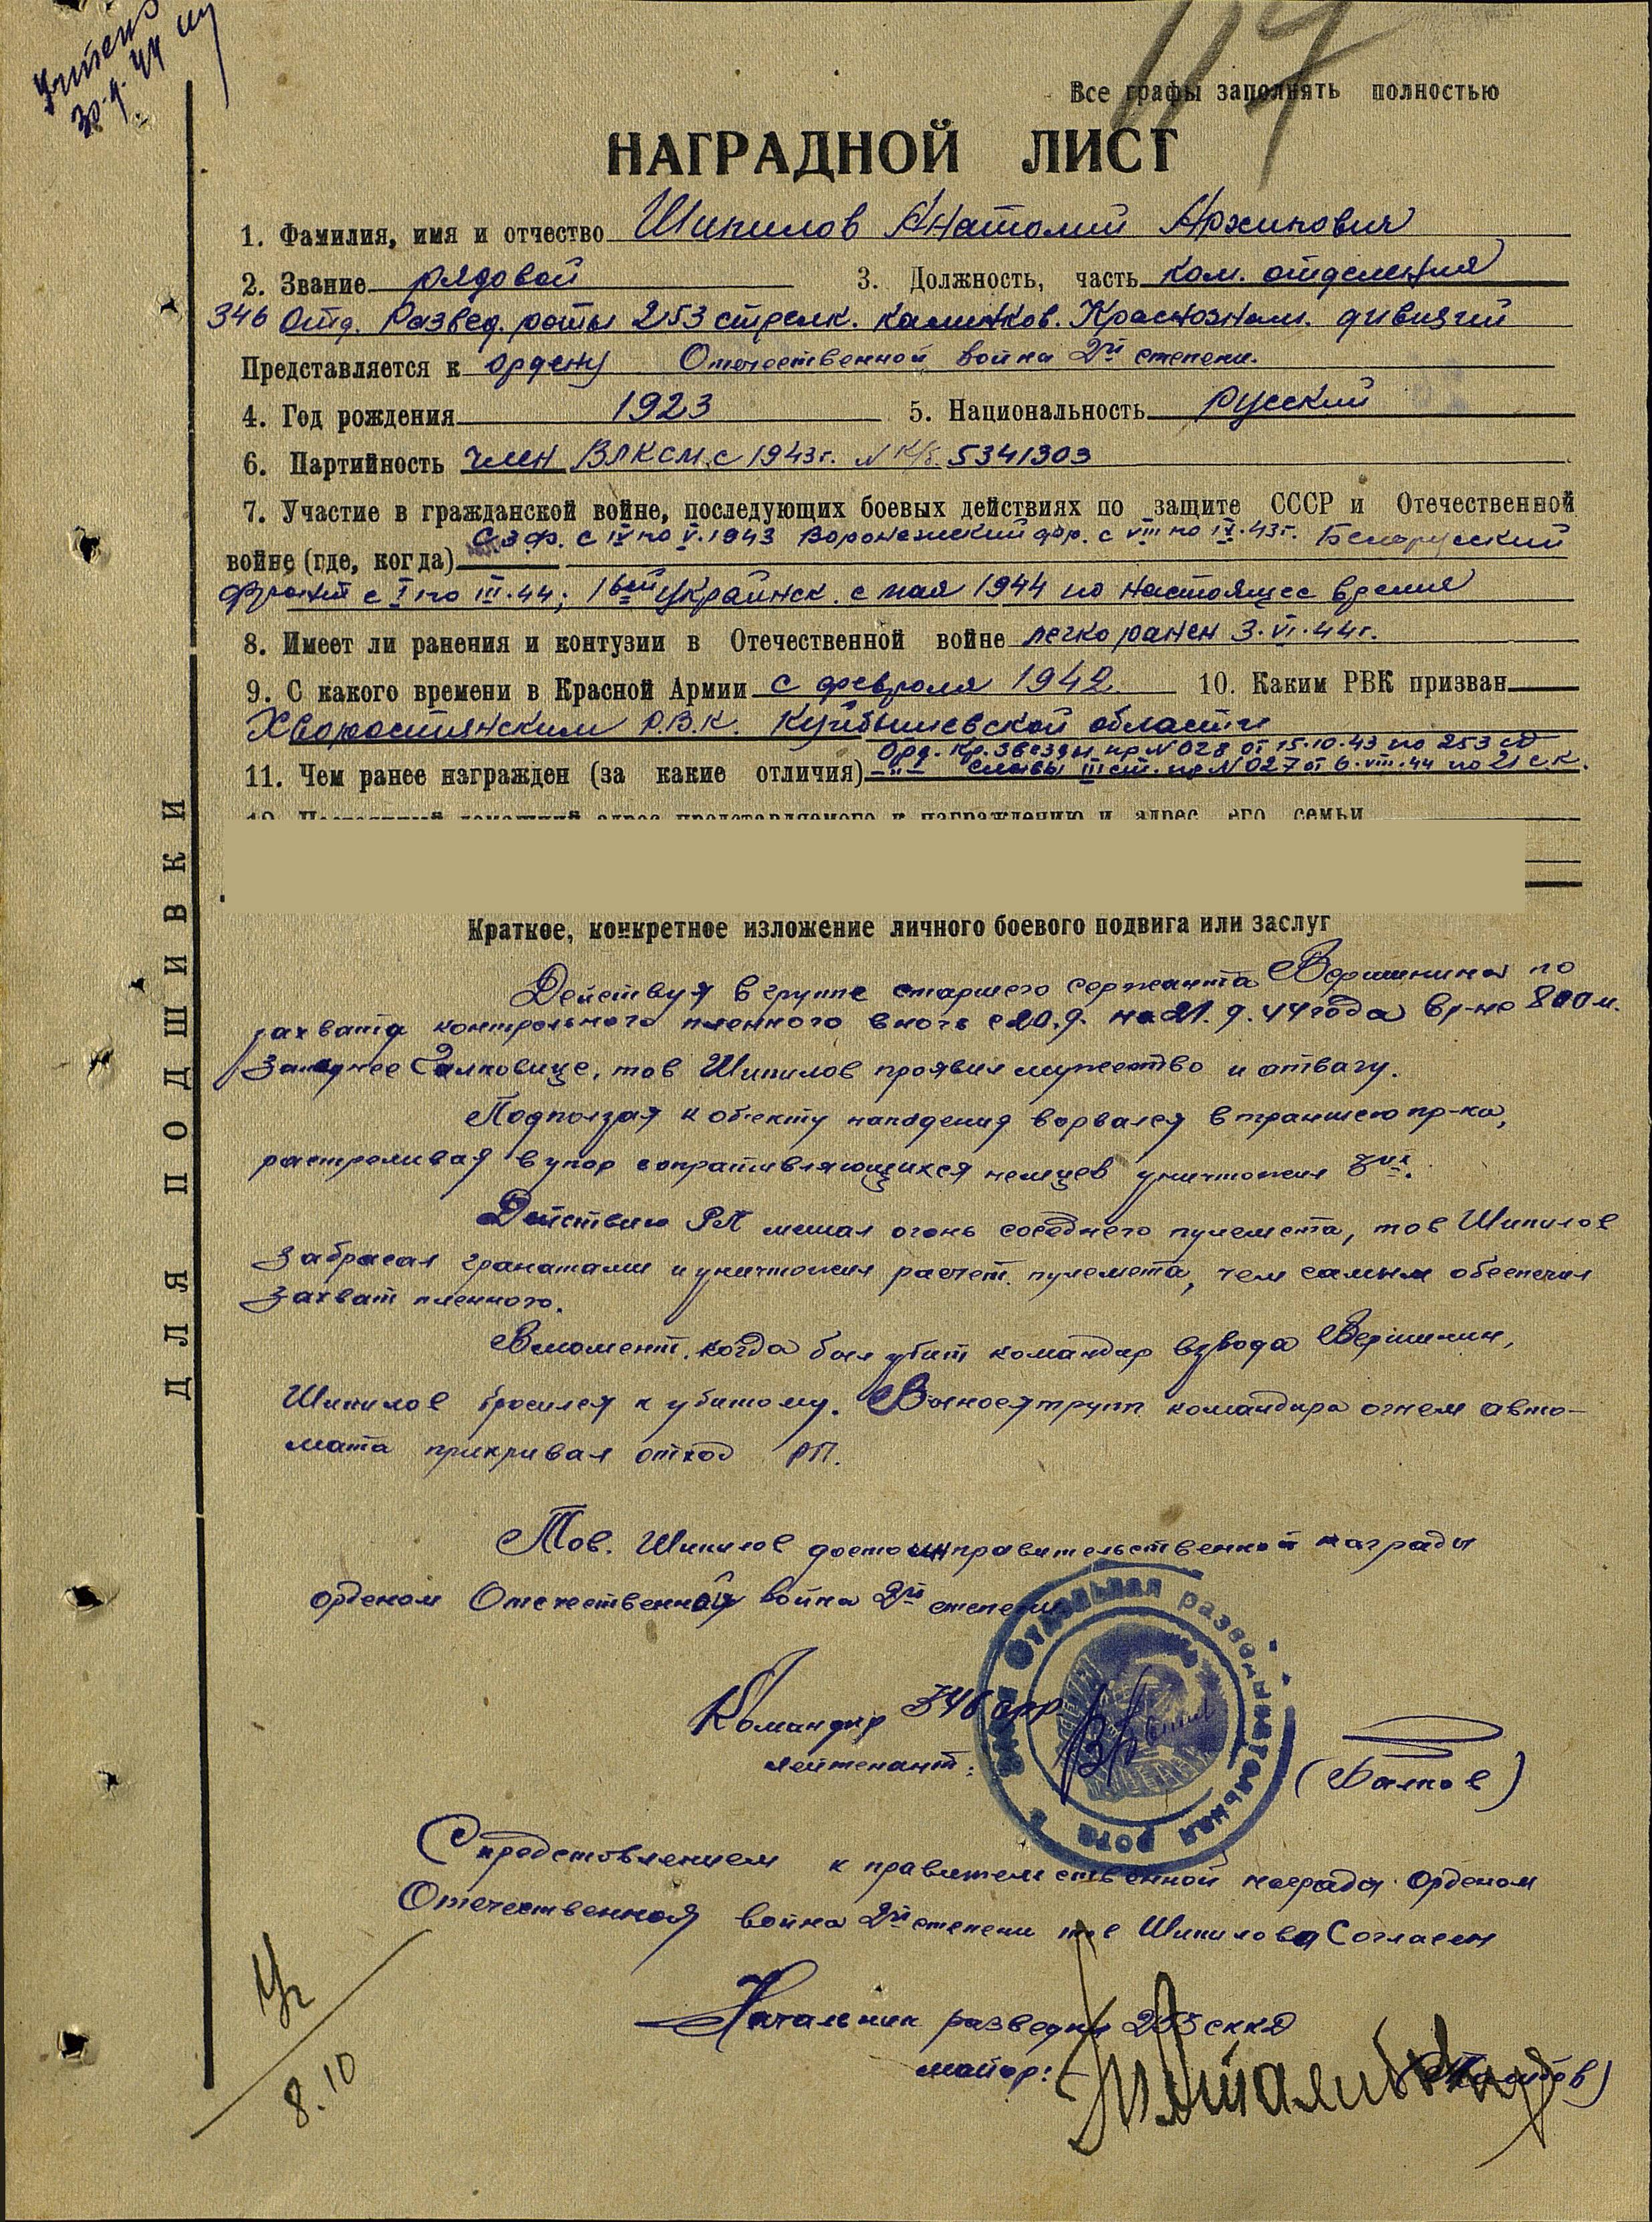 30.9.44
117
Все графы заполнять полностью
НАГРАДНОЙ ЛИСТ
1. Фамилия, имя и отчество Шипилов Анатолий Архипович
2. Звание рядовой 3. Должность, часть ком. отделения
346 Отд. Развед. роты 253 стрелк. калинков. Краснознам. дивизии
Представляется к ордену Отечественной война 2й степени.
4. Год рождения 1923 5. Национальность русский
6. Партийность член ВЛКСМ с 1943г. N К/б. 5341303
7. Участие в гражданской войне, последующих боевых действиях по защите СССР и Отечественной
войне (где, когда) С З Ф. с IV по V.1943 Воронежский фр. с VIII по IX.43г. Белорусский
фронт с I по III.44; 1вый украинск. с мая 1944 по настоящее время
8. Имеет ли ранения и контузии в Отечественной войне легко ранен 3.VI.44г.
9. С какого времени в Красной Армии с февраля 1942 10. Каким РВК призван
Хворостянским Р.В.К. Куйбышевской области
Орд. Кр. Звезды пр N 028 от 15.10.43 по 253 сд
11. Чем ранее награжден (за какие отличия) -"- Славы III ст. пр N 027 от 6.VIII.44 по 21 с.к.
Краткое, конкретное изложение личного боевого подвига или заслуг
Действуя в группе старшего сержанта Вершинина по
захвату контрольного пленного в ночь с 20.9. на 21.9.44 года в р-не 800 м.
западнее, тов Шипилов проявил мужество и отвагу.
Подползая к объекту нападения ворвался в траншею пр-ка,
растреливая в упор сопративляющихся немцев уничтожил
Действию РП мешал огонь соседнего пулемета, тов Шипилов
забросал гранатами и уничтожил расчет пулемета, тем самым обеспечил
захват пленного.
В момент, когда был убит командир взвода Вершинин,
Шипилов бросился к убитому. Вынося трупп командира огнем авто-
мата прикривал отход РП.
Тов. Шипилов достоин правительственной награды
орденом Отечественной война 2й степени
Командир 346 орр
лейтенант:
Отдельная разведывательная рота
С предствовлением к правительственной награды орденом
Отечественная война 2й степени тов Шипилова Согласен
Начальник разведки 253 сккд
майор:
8.10
ДЛЯ ПОДШИВКИ